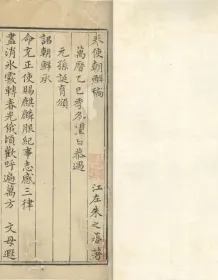 奉使朝鮮稿
江左朱之蕃著
萬曆乙巳季冬日恭遇
元孫誕育頒
詔朝鮮承
命充正使賜麒麟服紀事志感三律
盡消氷雪轉春光俄頃歡呼遍萬方 文母遐